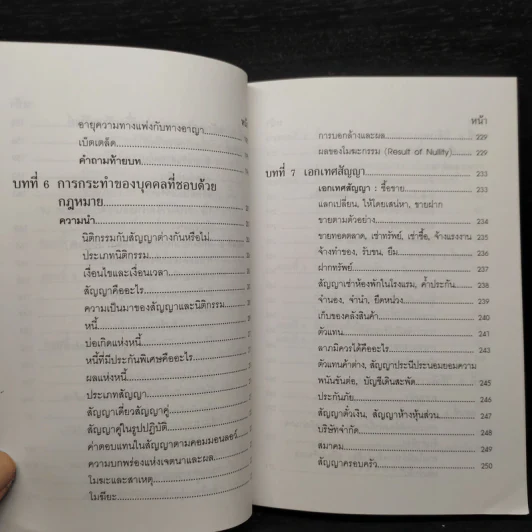 อายุความทางแพ่งกับทางอาญา
เบ็ดเตล็ด
คำถามท้ายบท
บทที่ 6 การกระทำของบุคคลที่ชอบด้วย
กฎหมาย
ความนำ
นิติกรรมกับสัญญาต่างกันหรือไม่
ประเภทนิติกรรม
เงื่อนไขและเงื่อนเวลา
สัญญาคืออะไร
ความเป็นมาของสัญญาและนิติกรรม
หนี้
บ่อเกิดแห่งหนี้
หนี้ที่มีประกันพิเศษคืออะไร
ผลแห่งหนี้
ประเภทสัญญา
สัญญาเดี่ยวสัญญาคู่
สัญญาคู่ในรูปปฏิบัติ
ค่าตอบแทนในสัญญาตามคอมมอนลอว์
ความบกพร่องแห่งเจตนาและผล
โมฆะและสาเหตุ
โมฆียะ
หน้า
การบอกล้างและผล 229
ผลของโมฆะกรรม (Result of Nullity) 229
บทที่ 7 เอกเทศสัญญา 233
เอกเทศสัญญา : ซื้อขาย 233
แลกเปลี่ยน, ให้โดยเสน่หา, ขายฝาก
ขายตามตัวอย่าง 234
ขายทอดตลาด, เช่าทรัพย์, เช่าซื้อ, จ้างแรงงาน 235
จ้างทำของ, รับขน, ยืม 236
ฝากทรัพย์ 237
สัญญาเช่าห้องพักในโรงแรม, ค้ำประกัน 238
จำนอง, จำนำ, ยึดหน่วง 239
เก็บของคลังสินค้า 240
ตัวแทน 241
ลาภมิควรได้คืออะไร 243
ตัวแทนค้าต่าง, สัญญาประนีประนอมยอมความ
พนันขันต่อ, บัญชีเดินสะพัด 245
ประกันภัย 246
สัญญาตั๋วเงิน, สัญญาห้างหุ้นส่วน 247
บริษัทจำกัด 248
สมาคม 249
สัญญาครอบครัว 250